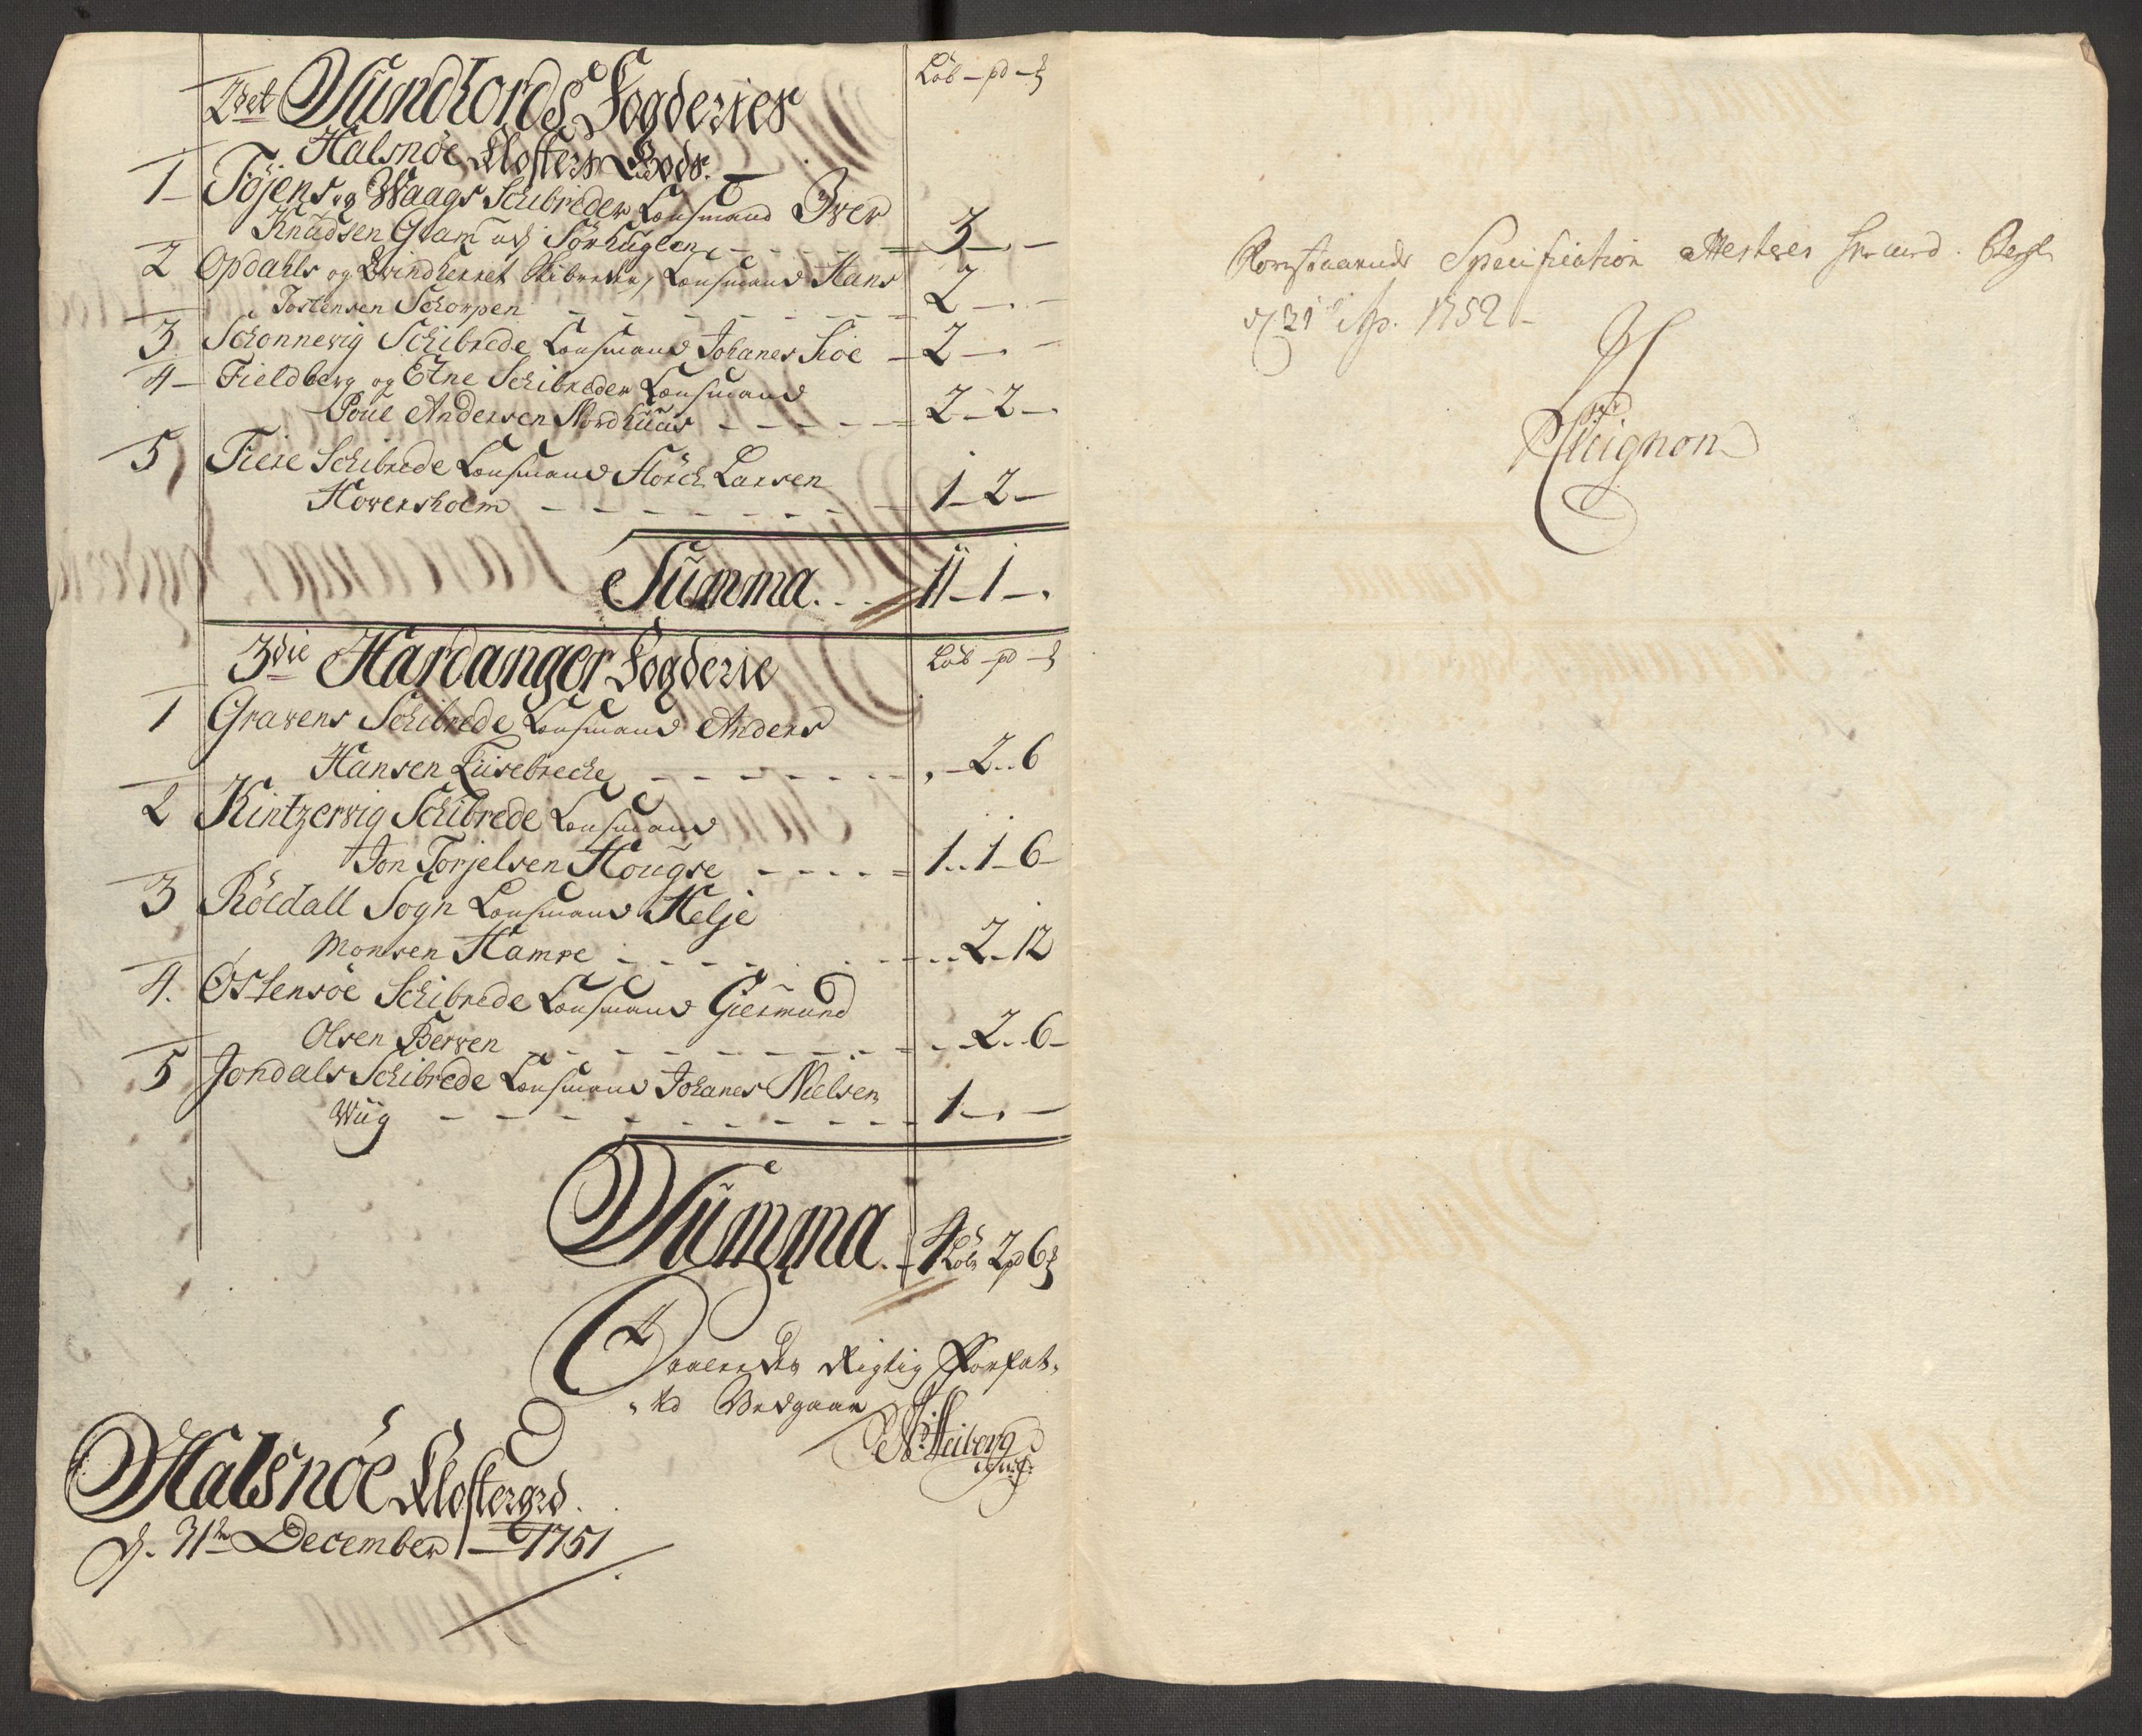 2det Sundhords Fogderies Löb - pd - ℔
Halsnöe Klosters Gods.
1 Föjens og Waags Schibreder Lensmand Iver
Knudsen Gram Sörhuglen 3 - . -
2 Opdahls og Qvindherret Skibreder, Lensmand Hans
Jostensen Schorpen 2 - . -
3 Schonnevig Schibrede Lensmand Johanes Sioe 2 - . -
4 Fieldberg og Etne Schibreder Lensmand
Poul Andersen Nordhuus 2 - 2 - .
5 Fiere Schibrede Lensmand Störch Larsen
Howersholm 1 - 2 -
Summa. 11 - 1 - .
3die Hardanger Fogderie Löb - pd - ℔
1 Gravens Schibrede Lensmand Anders
Hansen Liisebreche . - 2 .. 6
2 Kintzervig Schibrede Lensmand
Jon Torjelsen Hougse 1 .. 1 - 6
3 Röldall Sogn Lensmand Helje
Monsen Hamre 2 - 12
4. Östensöe Schibrede Lensmand Giermund
Olsen Berven 2 .. 6
5 Jondals Schibrede Lensmand Johanes Nielsen
Wiig 1 - . -
Summa. 4 Löb 2 pd 6 ℔
Saaledes Rigtig Forfat-
Vedgaar
Heiberg
Halsnöe Klostergrd.
d. 31te December 1751
Forestaaende Specification Attesteres
d 21 Ap. 1752